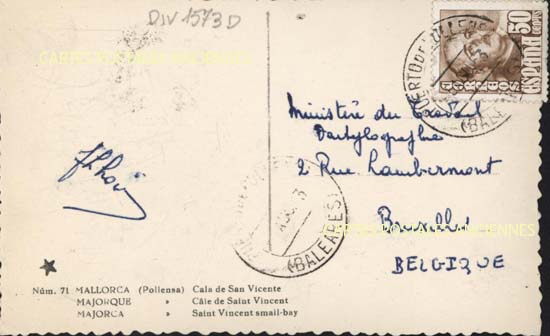 DIV 1573 D
50
CTS
ESPAÑA
CORREOS
PUERTO DE POLLENSA
(BALEARES)
CARTES POSTALES ANCIENNES
Ministère du Travail
Dactylographie
2 Rue Lambermont
Bruxelles
BELGIQUE
(BALEARES)
CARTES POSTALES ANCIENNES
Núm. 71 MALLORCA (Pollensa) Cala de San Vicente
MAJORQUE » Câle de Saint Vincent
MAJORCA » Saint Vincent small-bay